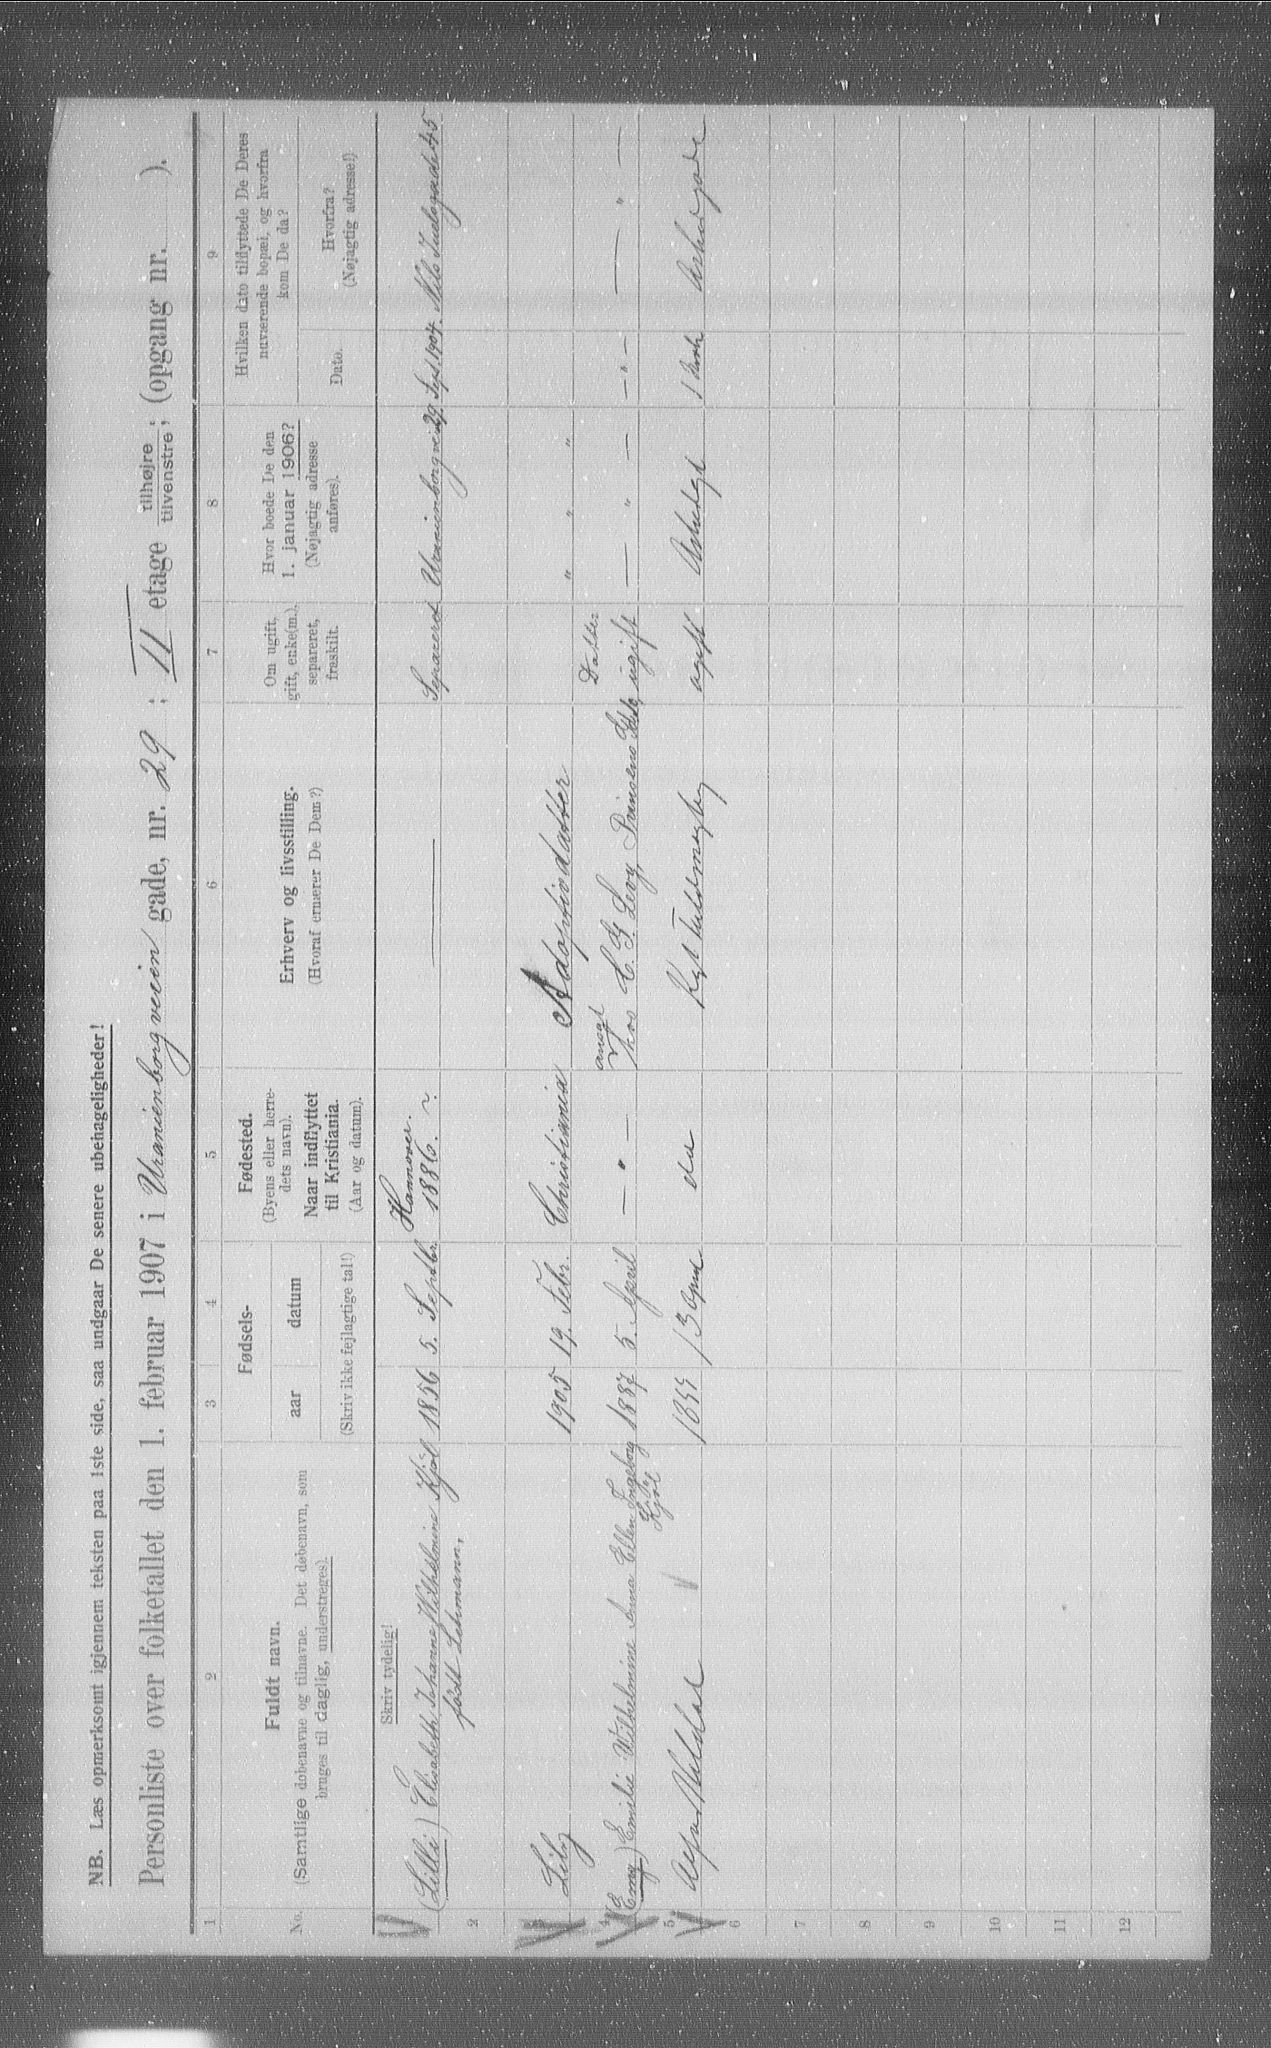 NB. Læs opmerksomt igjennem teksten paa 1ste side, saa undgaar De senere ubehageligheder!
Personliste over folketallet den 1. februar 1907 i Uranienborgveien gade, nr. 29 ; II etage tilhøjre / tilvenstre ; (opgang nr. ).
1 2 3 4 5 6 7 8 9
No.
Fuldt navn.
(Samtlige døbenavne og tilnavne. Det døbenavn, som
bruges til daglig, understreges).
Fødsels-
aar datum
(Skriv ikke fejlagtige tal!)
Fødested.
(Byens eller herre-
dets navn).
Naar indflyttet
til Kristiania.
(Aar og datum).
Erhverv og livsstilling.
(Hvoraf ernærer De Dem?)
Om ugift,
gift, enke(m.),
separeret,
fraskilt.
Hvor boede De den
1. januar 1906?
(Nøjagtig adresse
anføres).
Hvilken dato tilflyttede De Deres
nuværende bopæl, og hvorfra
kom De da?
Dato.
Hvorfra?
(Nøjagtig adresse!)
Skriv tydelig!
Hannover.
(Lilli) Elisabeth Johanne Wilhelmine Kjøl 1856 5. Septbr. 1886. ~. — Separeret Uranienborgvei 29. Sept. 1904. Nils Juelsgade 45
2 født Lehmann,
Lily 1905 19. Febr. Christiania Adoptivdatter " " "
ansat Datter
4 (Emy) Emilie Wilhelmine Anna Ellen Ingeborg 1887 5. April — " — hos C. G. Levy Prinsens ugift — " — — " — — " —
Kjøl
5 1 3
6
7
8
9
10
11
12